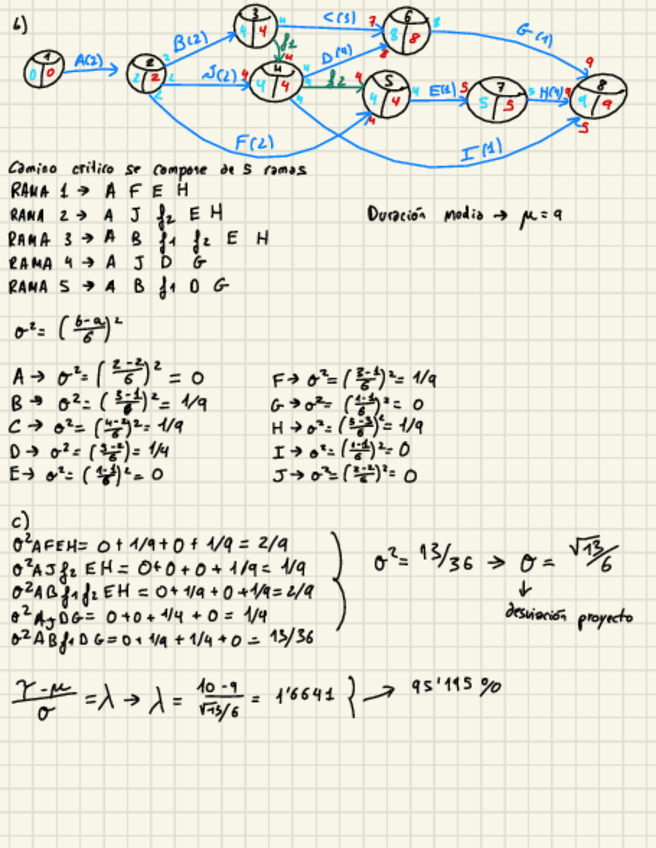 b)
1 0 0 A(2) 2 2 2 B(2) 3 4 4 C(3) 7 6 8 8 G(1) 9
J(2) 4 4 4 f1 D(4) 8 f2 4 5 4 4 E(1) 5 7 5 5 H(4) 9 8 9 9
F(2) 4 I(1) 5
Camino crítico se compone de 5 ramas
RAMA 1 → A F E H
RAMA 2 → A J f2 E H
Duración media → μ = 9
RAMA 3 → A B f1 f2 E H
RAMA 4 → A J D G
RAMA 5 → A B f1 D G
σ² = (b-a/6)²
A → σ² = (2-2/6)² = 0
B → σ² = (3-1/6)² = 1/9
C → σ² = (4-2/6)² = 1/9
D → σ² = (5-2/6) = 1/4
E → σ² = (1-1/6)² = 0
F → σ² = (3-1/6)² = 1/9
G → σ² = (1-1/6)² = 0
H → σ² = (5-3/6)² = 1/9
I → σ² = (1-1/6)² = 0
J → σ² = (2-2/6)² = 0
c)
σ²AFEH = 0 + 1/9 + 0 + 1/9 = 2/9
σ²AJf2 EH = 0+0+0+1/9 = 1/9
σ²ABf1f2EH = 0+1/9+0+1/9 = 2/9
σ²AJDG = 0+0+1/4+0 = 1/4
σ²ABf1DG = 0+1/9+1/4+0 = 13/36
σ² = 13/36 → σ = √13/6
↓
desviación proyecto
γ-μ/σ = λ → λ = 10-9/√13/6 = 1'6641 } → 95'195 %